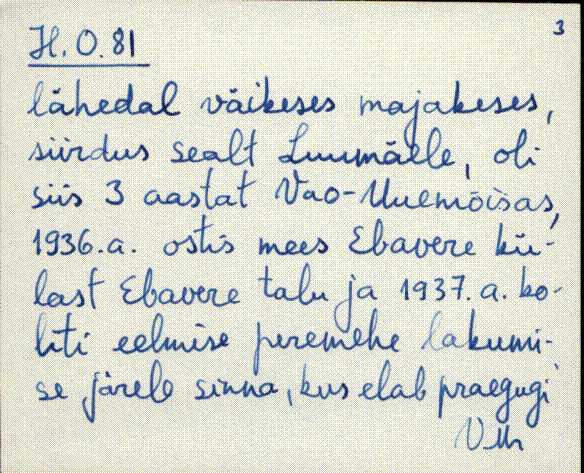 3
H.O.81
lähedal väikeses majakeses,
siirdus sealt Luumäele, oli
siis 3 aastat Vao-Uuemõisas,
1936.a. ostis mees Ebavere kü-
last Ebavere talu ja 1937.a. ko-
liti eelmise peremehe lakumi-
se järele sinna, kus elab praegugi